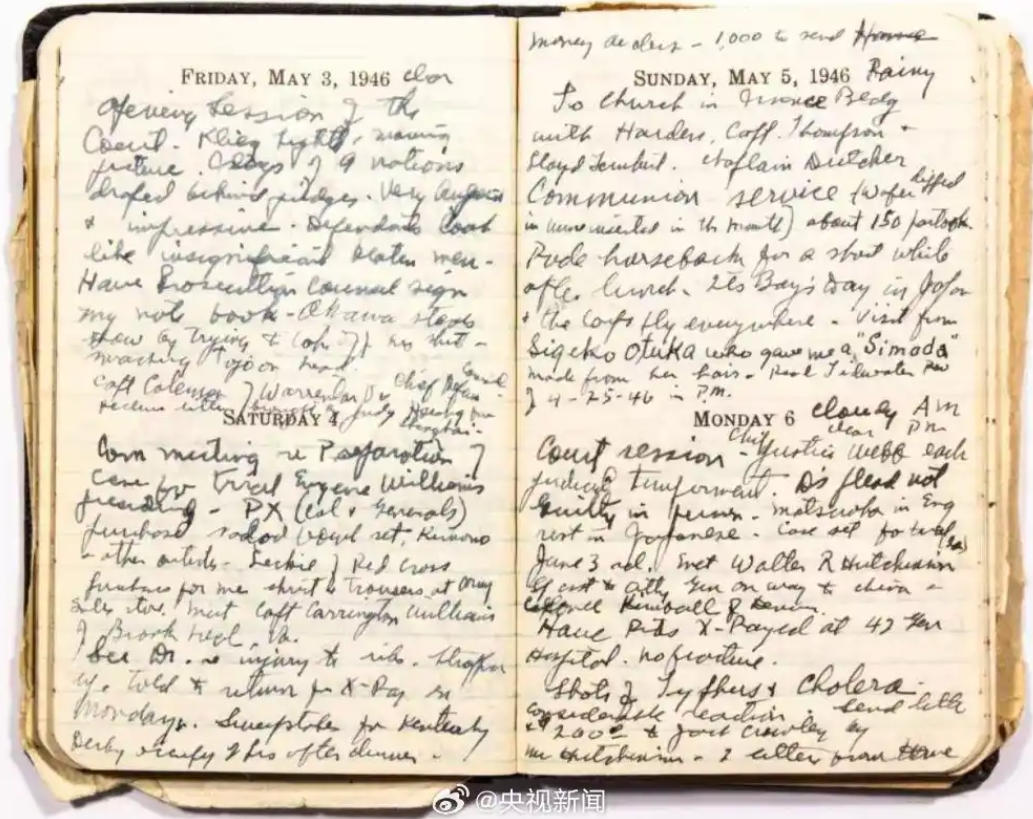 FRIDAY, MAY 3, 1946 clear
Opening Session of the
Court. Klieg lights, moving
picture. Flags of 9 nations
draped behind judges. Very august
& impressive. Defendants look
like insignificant beaten men.
Have Prosecution Counsel sign
my note book - Okawa steps
show by trying to
smacking Tojo on head.
Capt Coleman of Warrenton
Shanghai -
SATURDAY 4
Com meeting re Preparation of
case for trial Eugene Williams
presiding - PX (Col & Generals)
purchase salad bowl set, Kimono
& other articles - Red Cross
purchase for me shirt & trousers at Army
Sales store. Meet Capt Carrington Williams
of Brook Va.
See Dr. re injury to ribs. Strapped
up. Told to return for X-Ray on
Monday. Sweepstakes for Kentucky
Derby this after dinner.
money orders - 1,000 to send Home
SUNDAY, MAY 5, 1946 Rainy
To Church in Bldg
with Harden, Capt. Thompson &
Lloyd. Chaplain Dutcher
Communion service (Wafer dipped
in wine inserted in the mouth) about 150 partook
Rode horseback for a short while
after lunch. It's Boy's Day in Japan
& the Carps fly everywhere. Visit from
Sigeko Otuka who gave me a "Simoda"
made from her hair. Read Tidewater
of 4-25-46 in P.M.
MONDAY 6 cloudy AM
clear PM
Court session - Chief Justice Webb each
judicial Ds plead not
guilty in person. Matsuoka in Eng
rest in Japanese. Case set for trial
June 3rd. Met Walter R Hutchinson
asst to Atty Gen on way to China -
Colonel Kimball of Denver.
Have Ribs X-Rayed at 42 Gen
Hospital. No fracture.
Shots of Typhus & Cholera.
considerable reaction. Send letter
& 200 to Crowley by
Mr Hutchinson - 2 letters from Home
@央视新闻